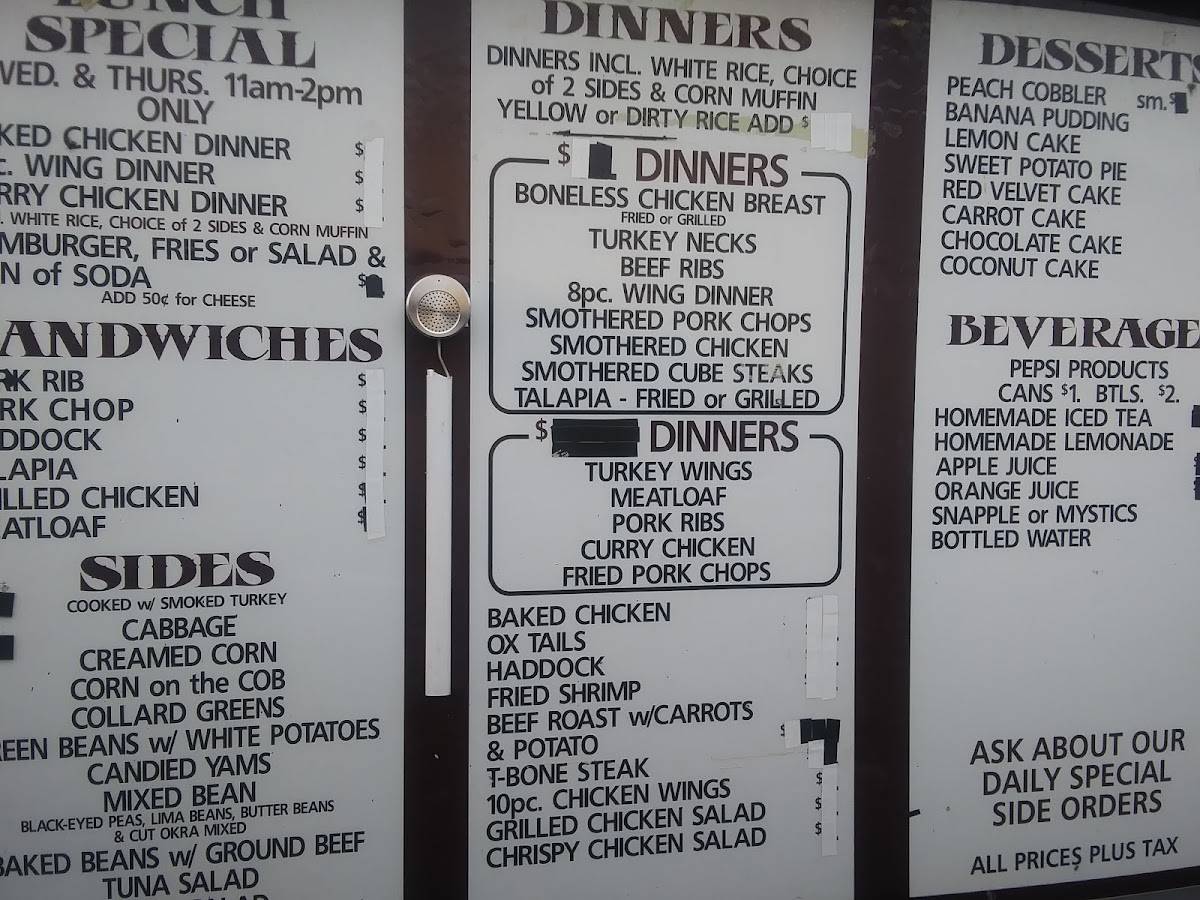 LUNCH
SPECIAL
WED. & THURS. 11am-2pm
ONLY
KED CHICKEN DINNER $
C. WING DINNER $
RRY CHICKEN DINNER $
. WHITE RICE, CHOICE of 2 SIDES & CORN MUFFIN
MBURGER, FRIES or SALAD &
N of SODA $
ADD 50¢ for CHEESE
ANDWICHES
RK RIB $
RK CHOP $
DDOCK $
LAPIA $
ILLED CHICKEN $
ATLOAF $
SIDES
COOKED w/ SMOKED TURKEY
CABBAGE
CREAMED CORN
CORN on the COB
COLLARD GREENS
REEN BEANS w/ WHITE POTATOES
CANDIED YAMS
MIXED BEAN
BLACK-EYED PEAS, LIMA BEANS, BUTTER BEANS
& CUT OKRA MIXED
BAKED BEANS w/ GROUND BEEF
TUNA SALAD
DINNERS
DINNERS INCL. WHITE RICE, CHOICE
of 2 SIDES & CORN MUFFIN
YELLOW or DIRTY RICE ADD $
$ DINNERS
BONELESS CHICKEN BREAST
FRIED or GRILLED
TURKEY NECKS
BEEF RIBS
8pc. WING DINNER
SMOTHERED PORK CHOPS
SMOTHERED CHICKEN
SMOTHERED CUBE STEAKS
TALAPIA - FRIED or GRILLED
$ DINNERS
TURKEY WINGS
MEATLOAF
PORK RIBS
CURRY CHICKEN
FRIED PORK CHOPS
BAKED CHICKEN
OX TAILS
HADDOCK
FRIED SHRIMP
BEEF ROAST w/CARROTS $
& POTATO
T-BONE STEAK $
10pc. CHICKEN WINGS $
GRILLED CHICKEN SALAD $
CHRISPY CHICKEN SALAD
DESSERTS
PEACH COBBLER sm. $
BANANA PUDDING
LEMON CAKE
SWEET POTATO PIE
RED VELVET CAKE
CARROT CAKE
CHOCOLATE CAKE
COCONUT CAKE
BEVERAGE
PEPSI PRODUCTS
CANS $1. BTLS. $2.
HOMEMADE ICED TEA
HOMEMADE LEMONADE
APPLE JUICE
ORANGE JUICE
SNAPPLE or MYSTICS
BOTTLED WATER
ASK ABOUT OUR
DAILY SPECIAL
SIDE ORDERS
ALL PRICES PLUS TAX